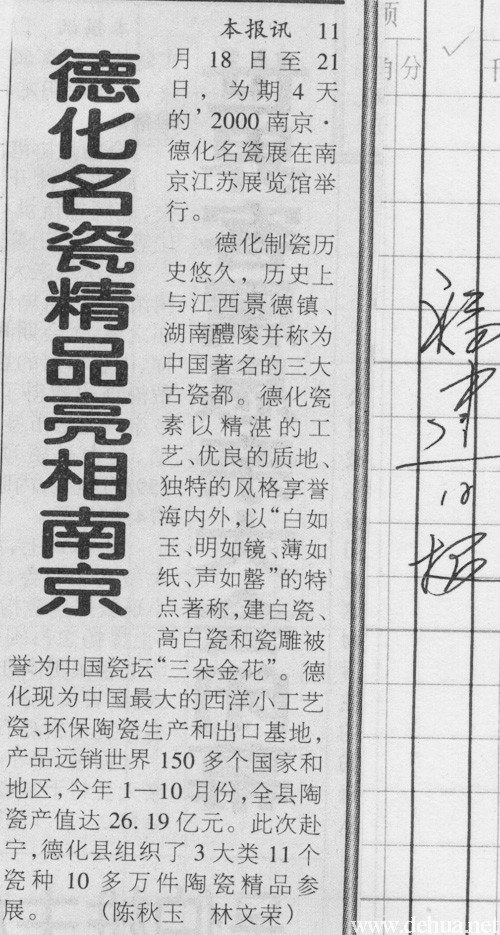 德化名瓷精品亮相南京
本报讯 11
月 18 日至 21
日，为期 4 天
的’2000 南京·
德化名瓷展在南
京江苏展览馆举
行。
德化制瓷历
史悠久，历史上
与江西景德镇、
湖南醴陵并称为
中国著名的三大
古瓷都。德化瓷
素以精湛的工
艺、优良的质地、
独特的风格享誉
海内外，以“白如
玉、明如镜、薄如
纸、声如罄”的特
点著称，建白瓷、
高白瓷和瓷雕被
誉为中国瓷坛“三朵金花”。德
化现为中国最大的西洋小工艺
瓷、环保陶瓷生产和出口基地，
产品远销世界 150 多个国家和
地区，今年 1—10 月份，全县陶
瓷产值达 26.19 亿元。此次赴
宁，德化县组织了 3 大类 11 个
瓷种 10 多万件陶瓷精品参
展。 （陈秋玉 林文荣）
分
www.dehua.net